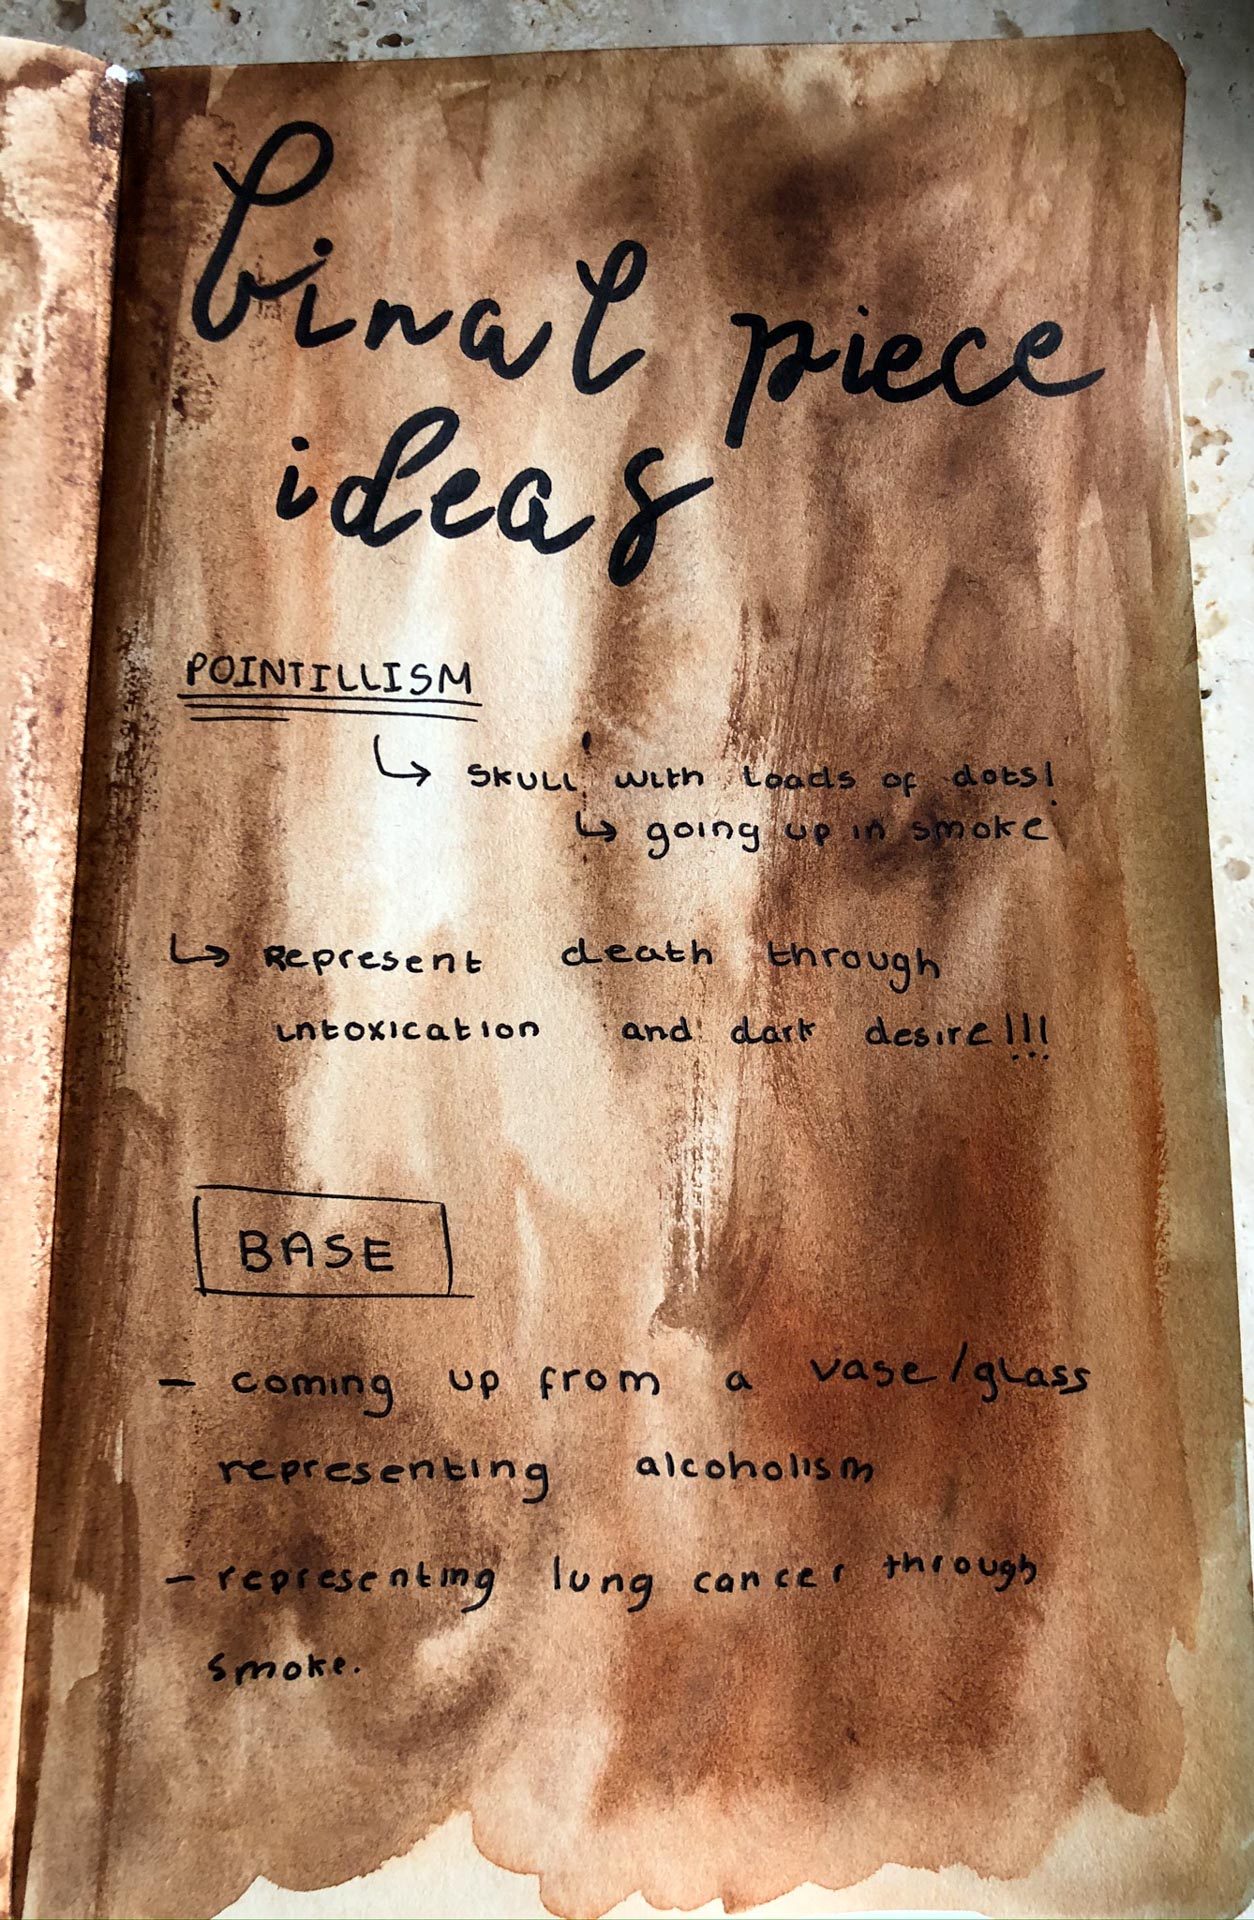 final piece
ideas
POINTILLISM
↳ skull with loads of dots!
↳ going up in smoke
↳ Represent death through
intoxication and dark desire!!!
BASE
- coming up from a vase/glass
representing alcoholism
- representing lung cancer through
smoke.